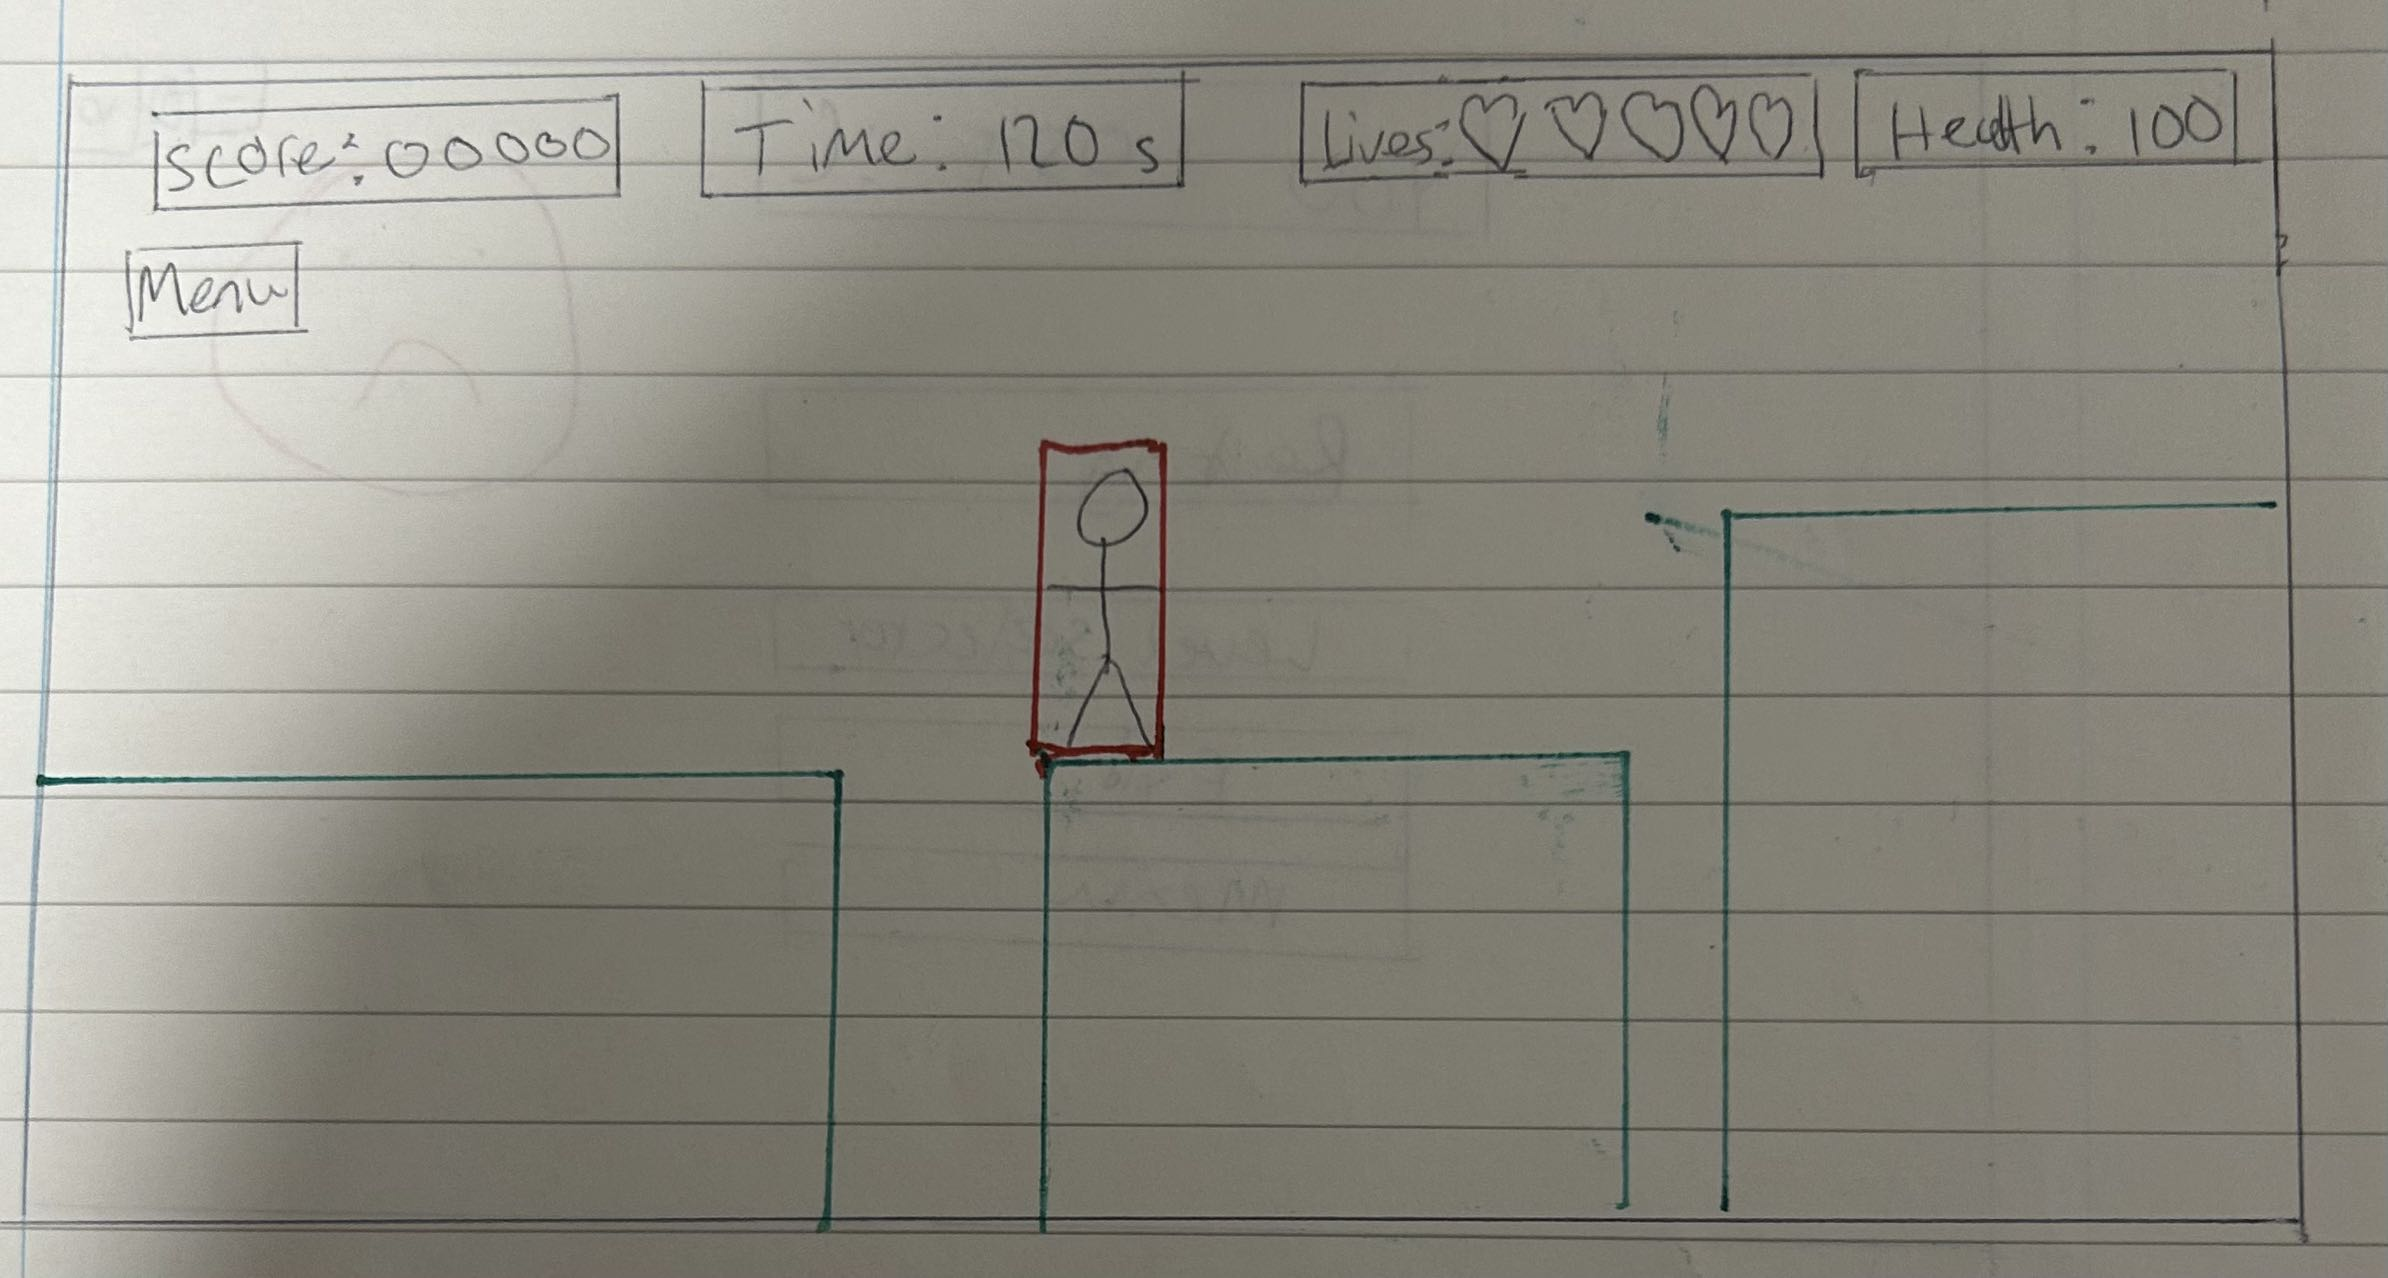 Score: 00000 Time: 120 s Lives: ♡♡♡♡♡ Health: 100
Menu